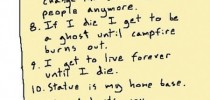 people anymore.
8. If I die I get to be
a ghost until campfire
burns out.
9. I get to live forever
until I die.
10. Statue is my home base.